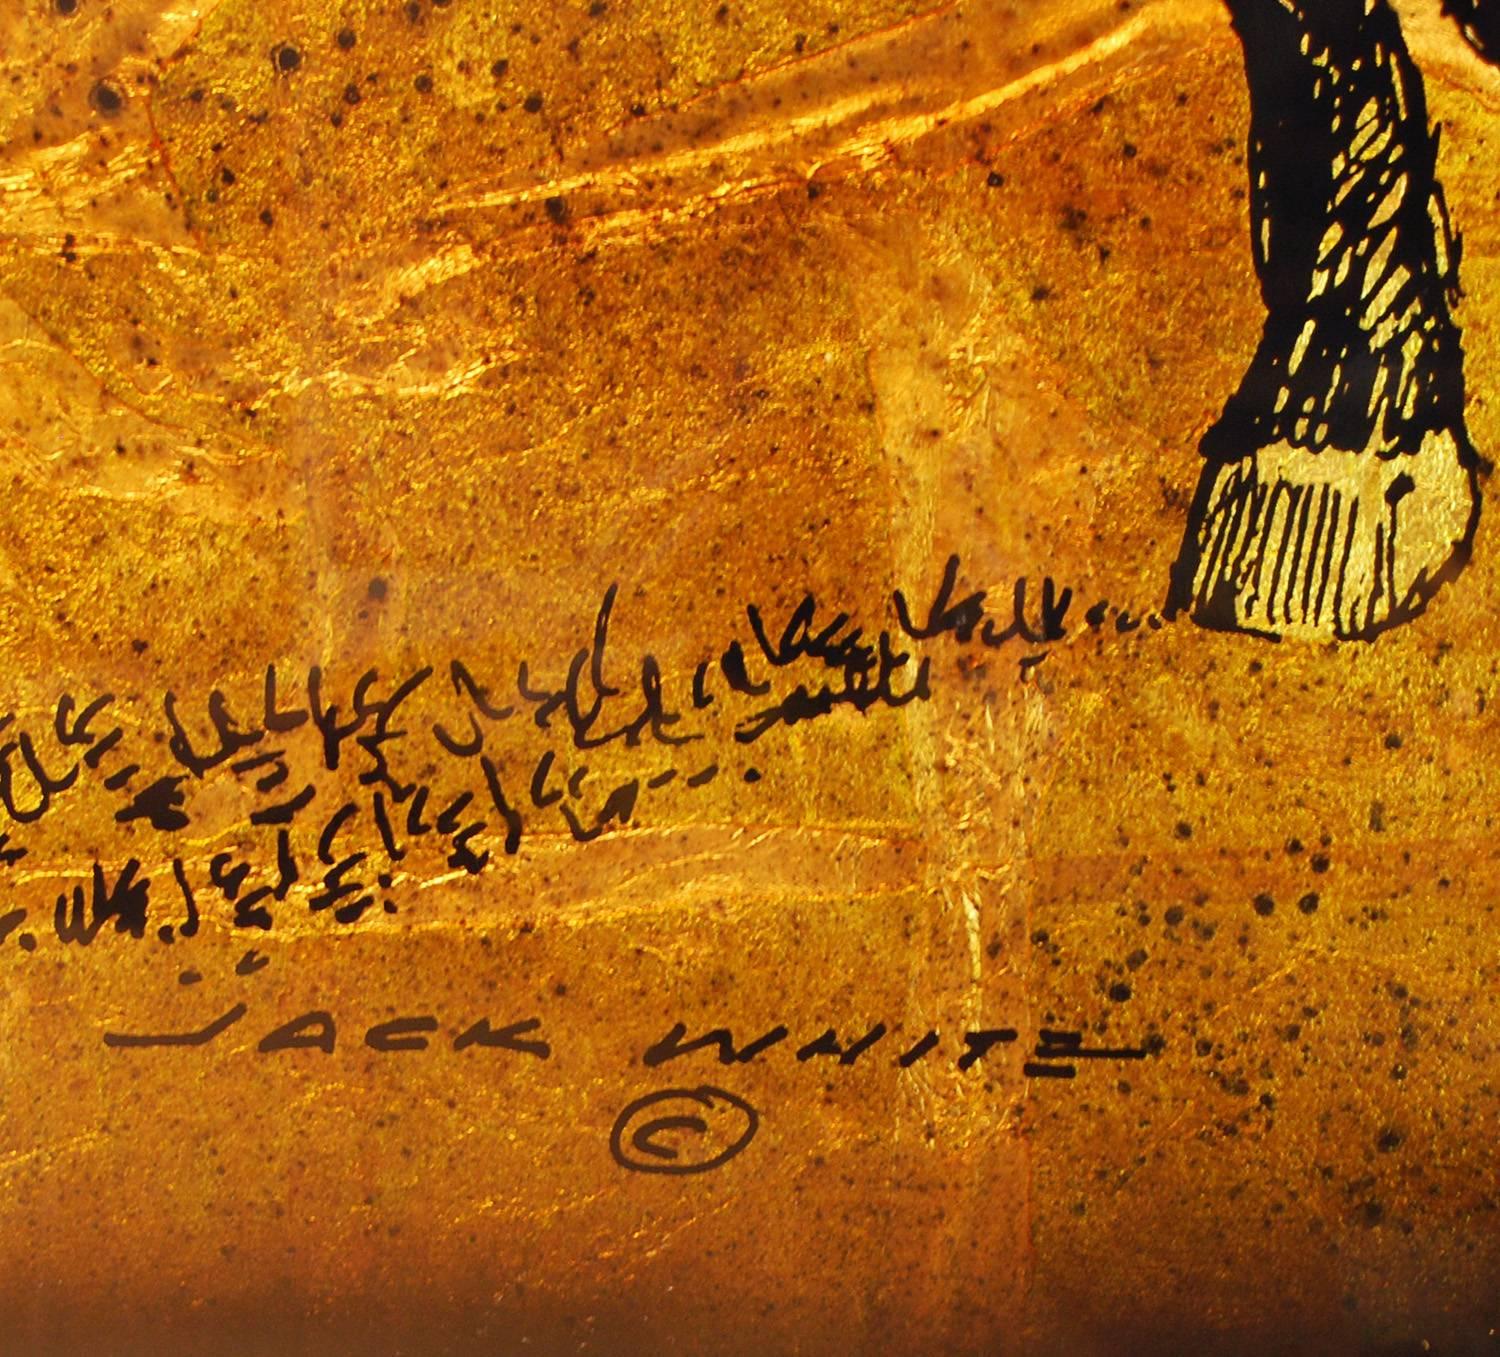 JACK WHITE
©